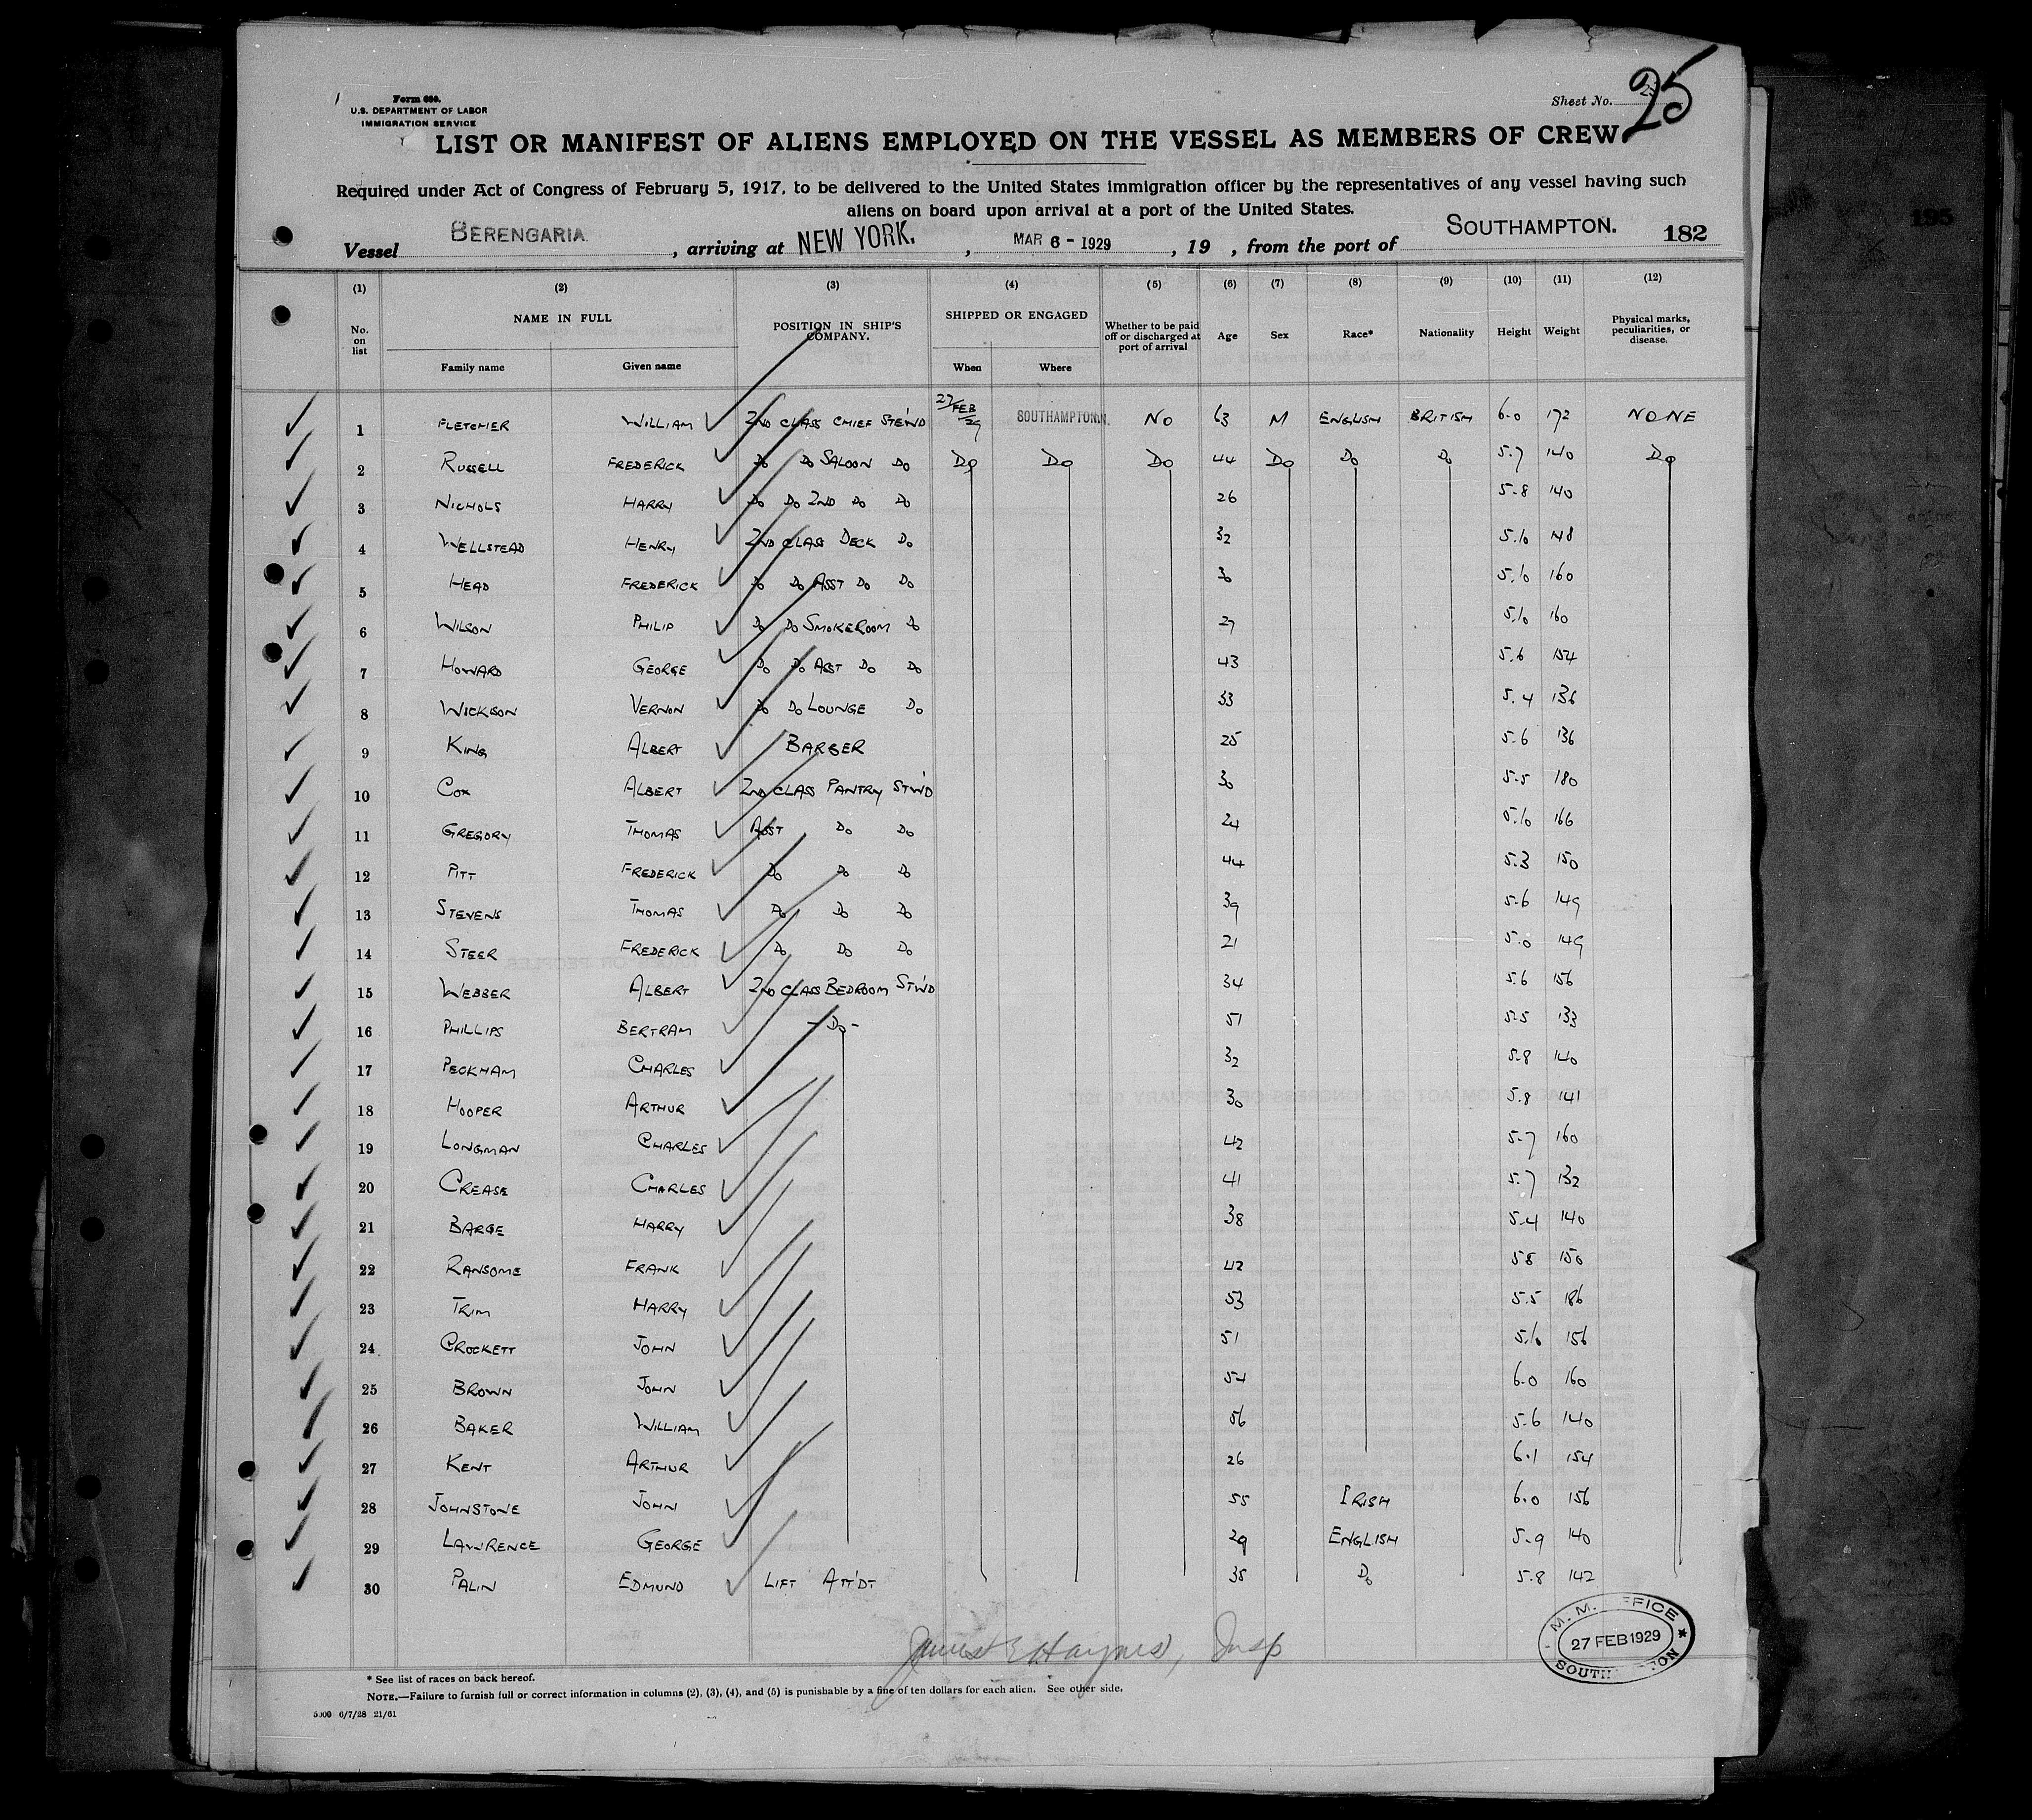 25
Form 680.
U.S. DEPARTMENT OF LABOR
IMMIGRATION SERVICE
Sheet No.
LIST OR MANIFEST OF ALIENS EMPLOYED ON THE VESSEL AS MEMBERS OF CREW
Required under Act of Congress of February 5, 1917, to be delivered to the United States immigration officer by the representatives of any vessel having such
aliens on board upon arrival at a port of the United States.
Vessel BERENGARIA, arriving at NEW YORK., MAR 6 - 1929, 19 , from the port of SOUTHAMPTON. 182
(1) (2) (3) (4) (5) (6) (7) (8) (9) (10) (11) (12)
No. on list NAME IN FULL POSITION IN SHIP'S COMPANY. SHIPPED OR ENGAGED Whether to be paid off or discharged at port of arrival Age Sex Race* Nationality Height Weight Physical marks, peculiarities, or disease.
Family name Given name When Where
1 FLETCHER WILLIAM 2ND CLASS CHIEF STE'WD 27/FEB/29 SOUTHAMPTON. NO 63 M ENGLISH BRITISH 6.0 172 NONE
2 RUSSELL FREDERICK DO DO SALOON DO DO DO DO 44 DO DO DO 5.7 140 DO
3 NICHOLS HARRY DO DO 2ND DO DO 26 5.8 140
4 WELLSTEAD HENRY 2ND CLASS DECK DO 32 5.10 148
5 HEAD FREDERICK DO DO ASST DO DO 30 5.10 160
6 WILSON PHILIP DO DO SMOKEROOM DO 27 5.10 160
7 HOWARD GEORGE DO DO ASST DO DO 43 5.6 154
8 WICKSON VERNON DO DO LOUNGE DO 33 5.4 136
9 KING ALBERT BARBER 25 5.6 136
10 COX ALBERT 2ND CLASS PANTRY STW'D 30 5.5 180
11 GREGORY THOMAS ASST DO DO 24 5.10 166
12 PITT FREDERICK DO DO DO 44 5.3 150
13 STEVENS THOMAS DO DO DO 39 5.6 149
14 STEER FREDERICK DO DO DO 21 5.0 149
15 WEBBER ALBERT 2ND CLASS BEDROOM ST'WD 34 5.6 156
16 PHILLIPS BERTRAM - DO - 51 5.5 133
17 PECKHAM CHARLES 32 5.8 140
18 HOOPER ARTHUR 30 5.8 141
19 LONGMAN CHARLES 42 5.7 160
20 CREASE CHARLES 41 5.7 132
21 BARGE HARRY 38 5.4 140
22 RANSOME FRANK 42 5.8 150
23 TRIM HARRY 53 5.5 186
24 CROCKETT JOHN 51 5.10 156
25 BROWN JOHN 54 6.0 160
26 BAKER WILLIAM 56 5.6 140
27 KENT ARTHUR 26 6.1 154
28 JOHNSTONE JOHN 55 IRISH 6.0 156
29 LAWRENCE GEORGE 29 ENGLISH 5.9 140
30 PALIN EDMUND LIFT ATT'DT 38 DO 5.8 142
James E Haynes, Insp
M. M. OFFICE
27 FEB 1929
* See list of races on back hereof.
NOTE.—Failure to furnish full or correct information in columns (2), (3), (4), and (5) is punishable by a fine of ten dollars for each alien. See other side.
5000 6/7/28 21/61
195